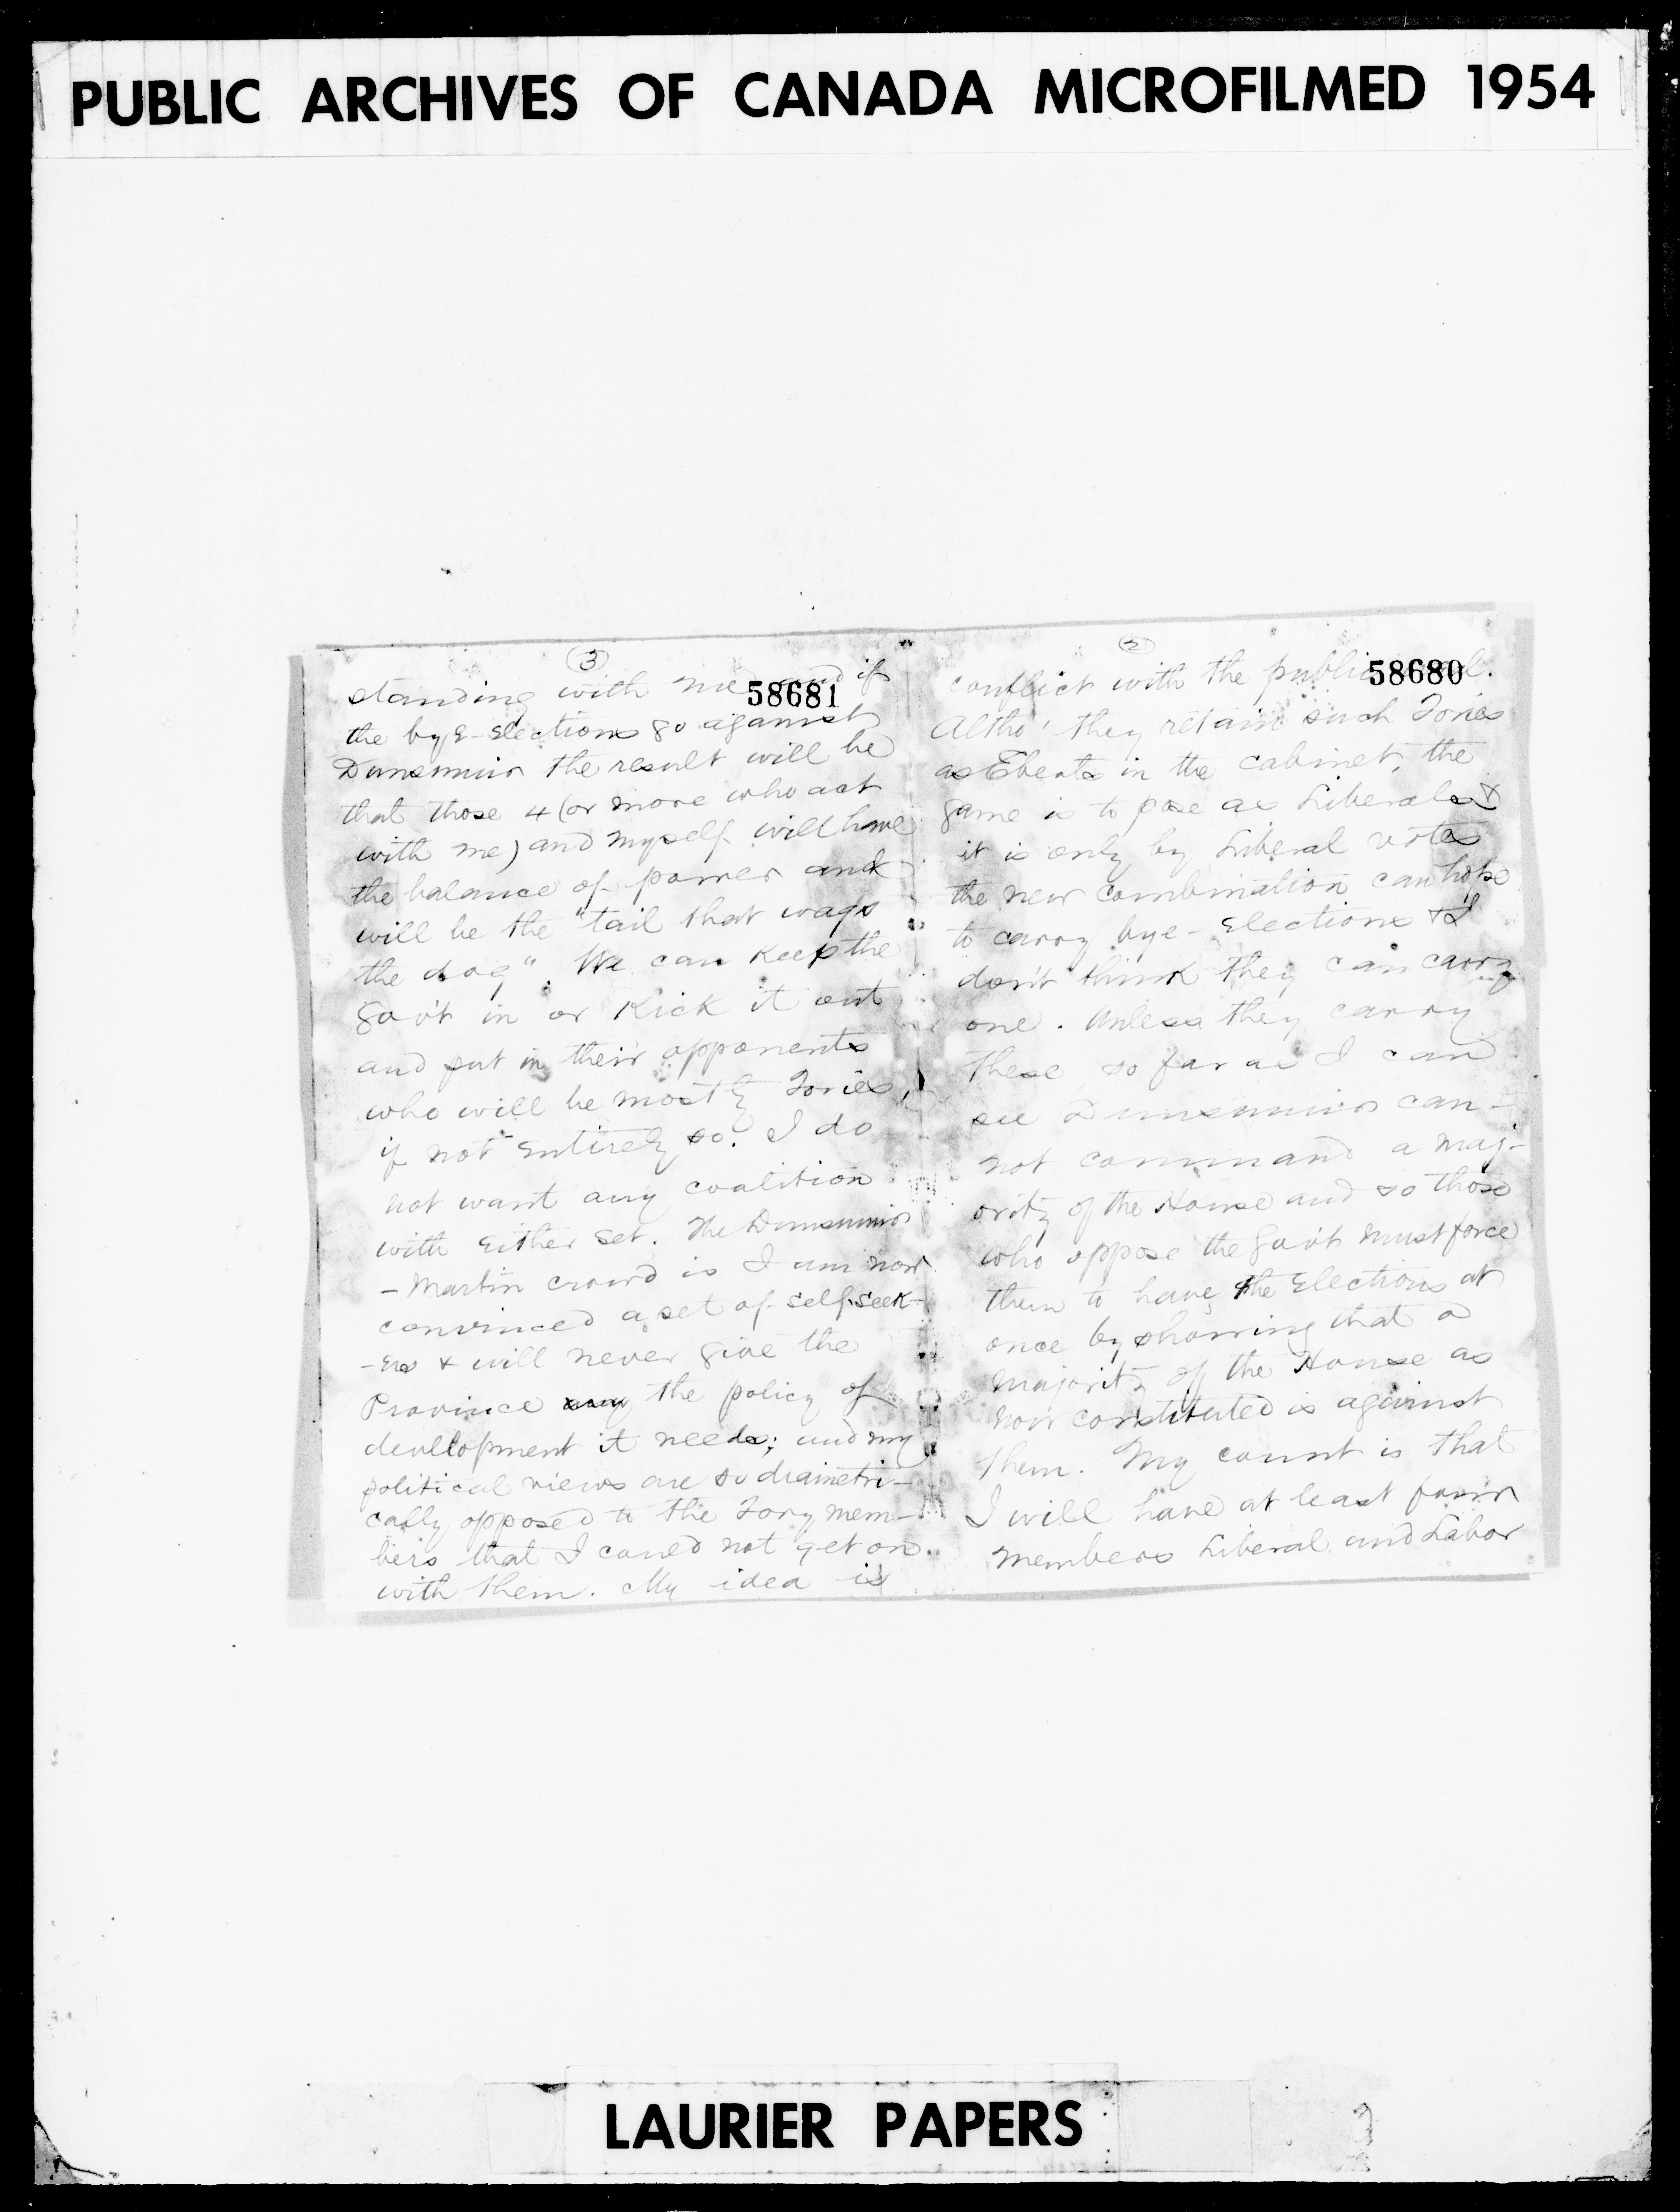 PUBLIC ARCHIVES OF CANADA MICROFILMED 1954
3
58681
standing with me and if
the bye-elections go against
Dunsmuir the result will be
that those 4 (or more who act
with me) and myself will have
the balance of power and
will be the "tail that wags
the dog". We can keep the
gov't in or kick it out
and put in their opponents
who will be mostly Tories,
if not entirely so. I do
not want any coalition
with either set. The Dunsmuir
-Martin crowd is I am now
convinced a set of self seek-
-ers & will never give the
Province any the policy of
devellopment it needs; and my
political views are so diametri-
cally opposed to the Tory mem-
bers that I could not get on
with them. My idea is
2
58680
conflict with the public
Altho' they retain such Tories
as Eberts in the cabinet, the
game is to pose as Liberals &
it is only by Liberal votes
the new combination can hope
to carry bye-elections & I
don't think they can carry
one. Unless they carry
these, so far as I can
see Dunsmuir can-
not command a maj-
ority of the House and so those
who oppose the gov't must force
them to have the elections at
once by showing that a
majority of the House as
now constituted is against
them. My count is that
I will have at least four
members Liberal and Labor
LAURIER PAPERS